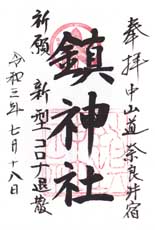 奉拝 中山道 奈良井宿
鎮神社
祈願 新型コロナ退散
令和三年 七月十八日